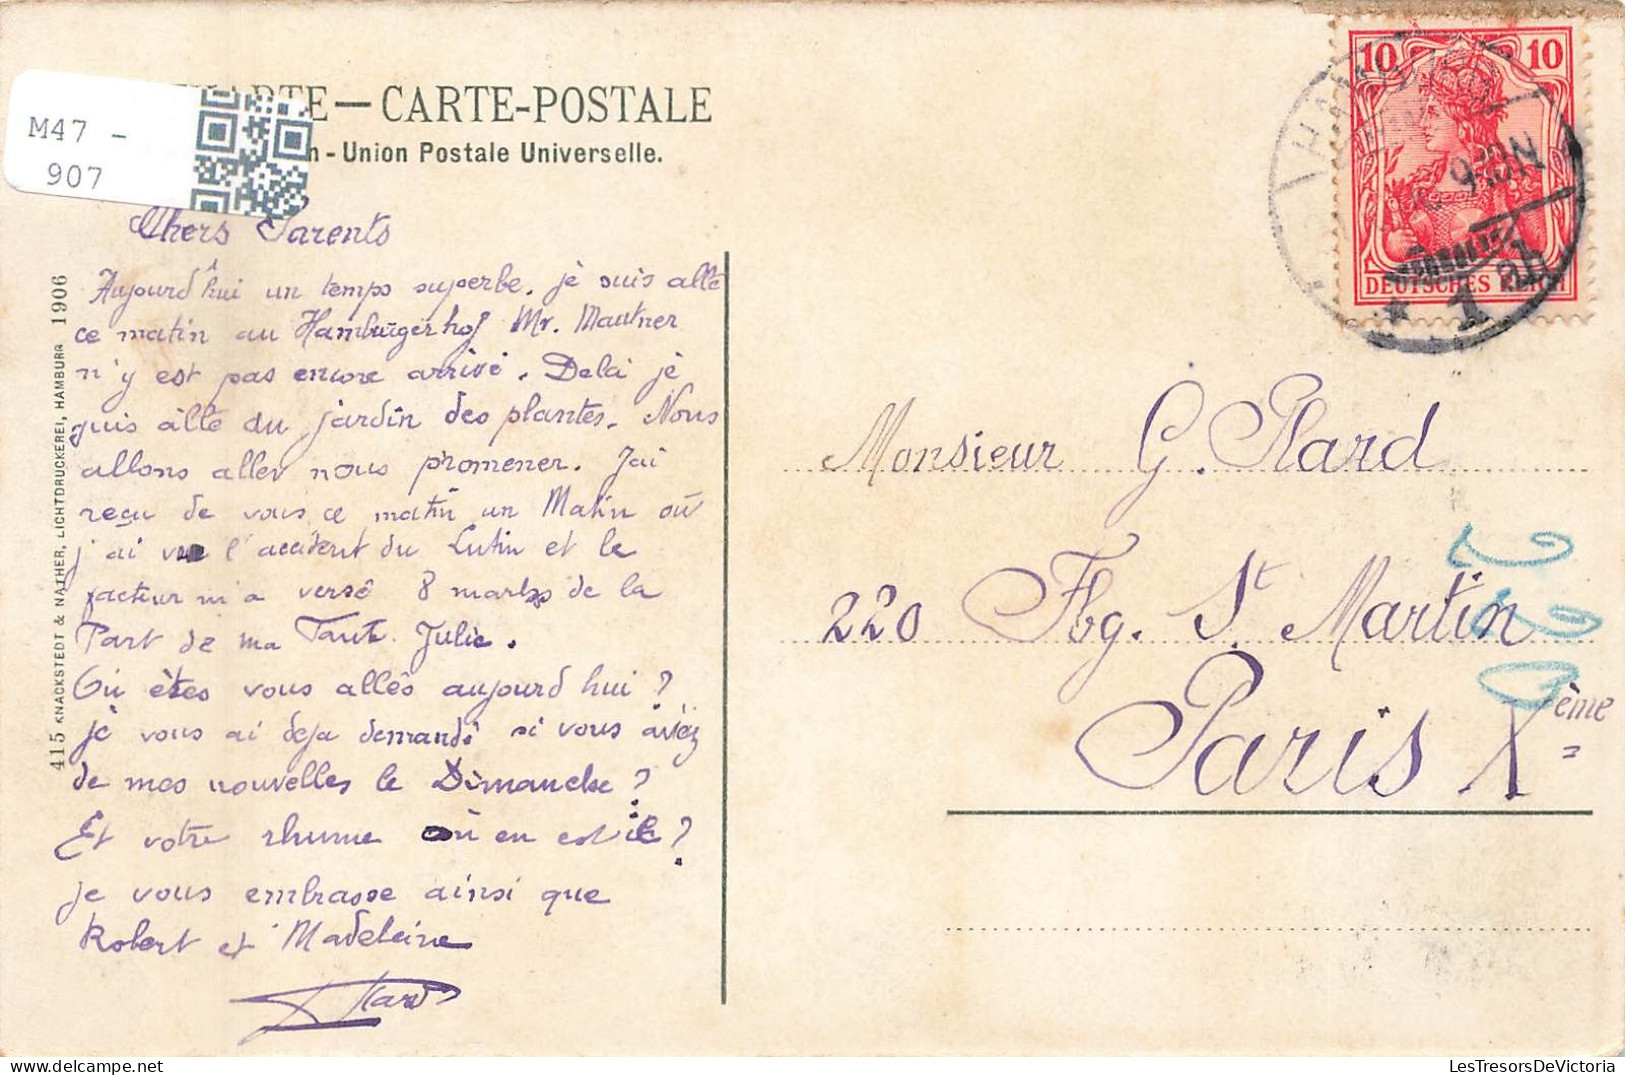 M47 -
907
KARTE — CARTE-POSTALE
n - Union Postale Universelle.
Chers Parents
Aujourd'hui un temps superbe. je suis allé
ce matin au Hamburgerhof Mr. Mautner
n'y est pas encore arrivé. Delà je
suis allé au jardin des plantes. Nous
allons aller nous promener. J'ai
reçu de vous ce matin un Matin où
j'ai vu l'accident du Lutin et le
facteur m'a versé 8 marks de la
Part de ma Tante Julie.
Où êtes vous allés aujourd'hui ?
je vous ai deja demandé si vous avez
de mes nouvelles le Dimanche ?
Et votre rhume où en est il ?
je vous embrasse ainsi que
Robert et Madeleine
Plard
415 KNACKSTEDT & NÄTHER, LICHTDRUCKEREI, HAMBURG 1906
10 10
DEUTSCHES REICH
HAMBURG
9-10N
* 1 2h
Monsieur G. Plard
220 Fbg. St Martin
Paris Xème
220
LesTresorsDeVictoria.com